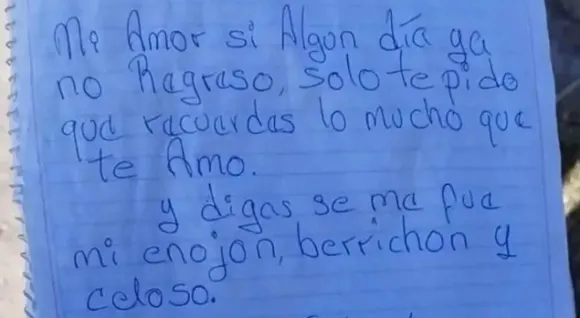 Mi Amor si Algon día ya
no Ragraso, solo te pido
qua racuardas lo mucho que
te Amo.
y digas se ma fua
mi enojon, berrichon y
celoso.